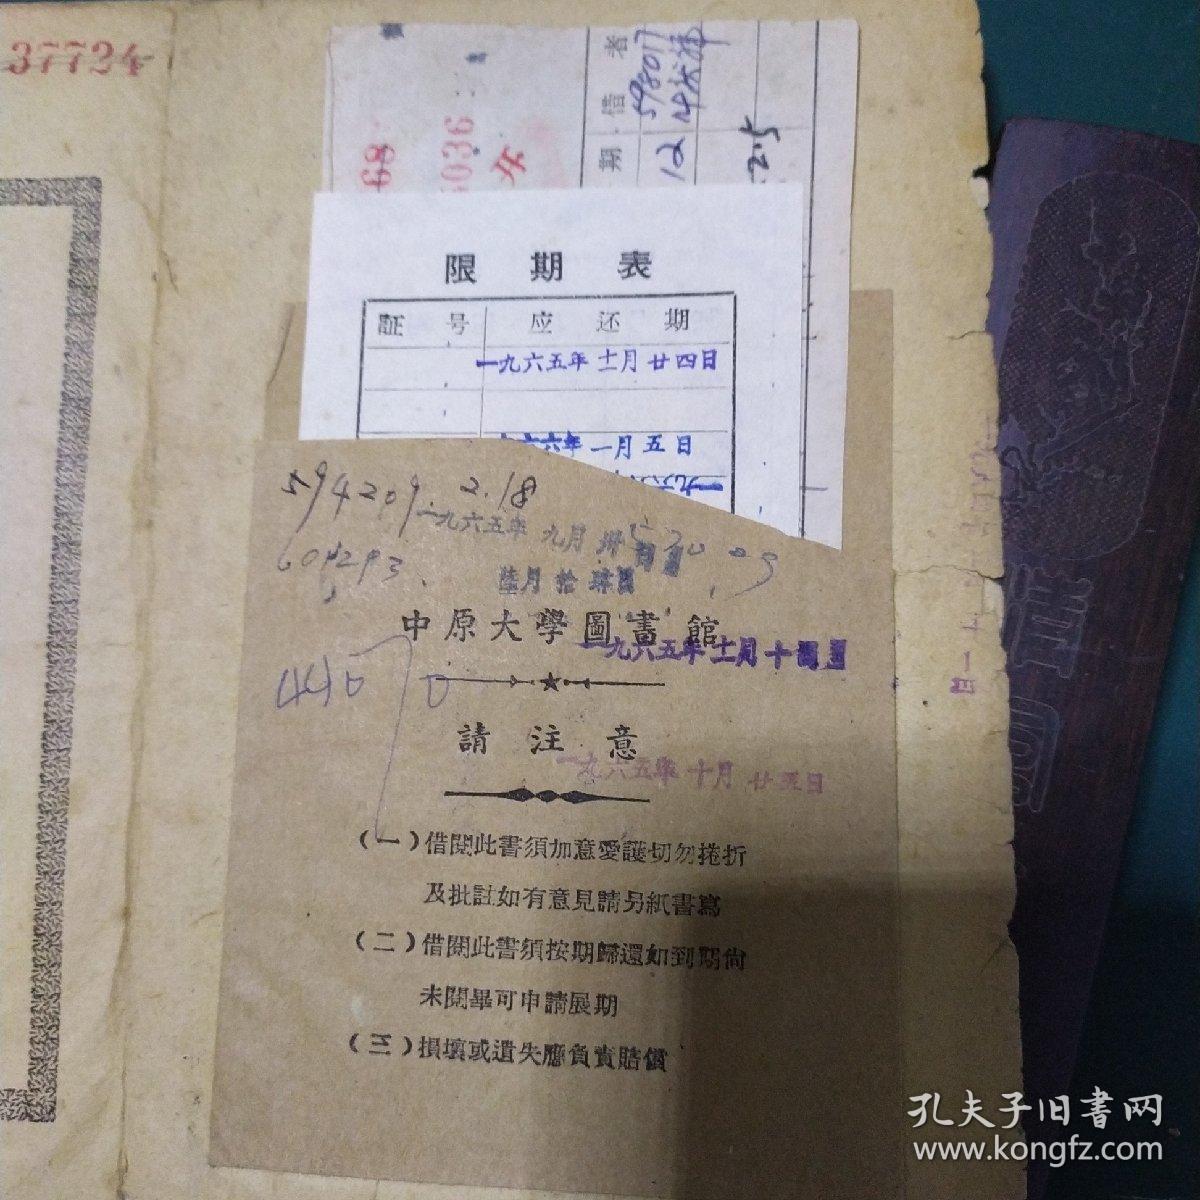 37724
68
5036
期 借 者
12 598017
2.5
限 期 表
証 号 应 还 期
一九六五年 十一月 廿四日
六六年 一月 五 日
一九六
594209. 2.18
一九六五年 九月
601293
陆月 拾
中原大學圖書館
一九六五年 十一月 十
440
請 注 意
一九六五年 十月 廿五日
(一)借閱此書須加意愛護切勿捲折
及批註如有意見請另紙書寫
(二)借閱此書須按期歸還如到期尙
未閱畢可申請展期
(三)損壞或遺失應負責賠償
孔夫子旧书网
www.kongfz.com